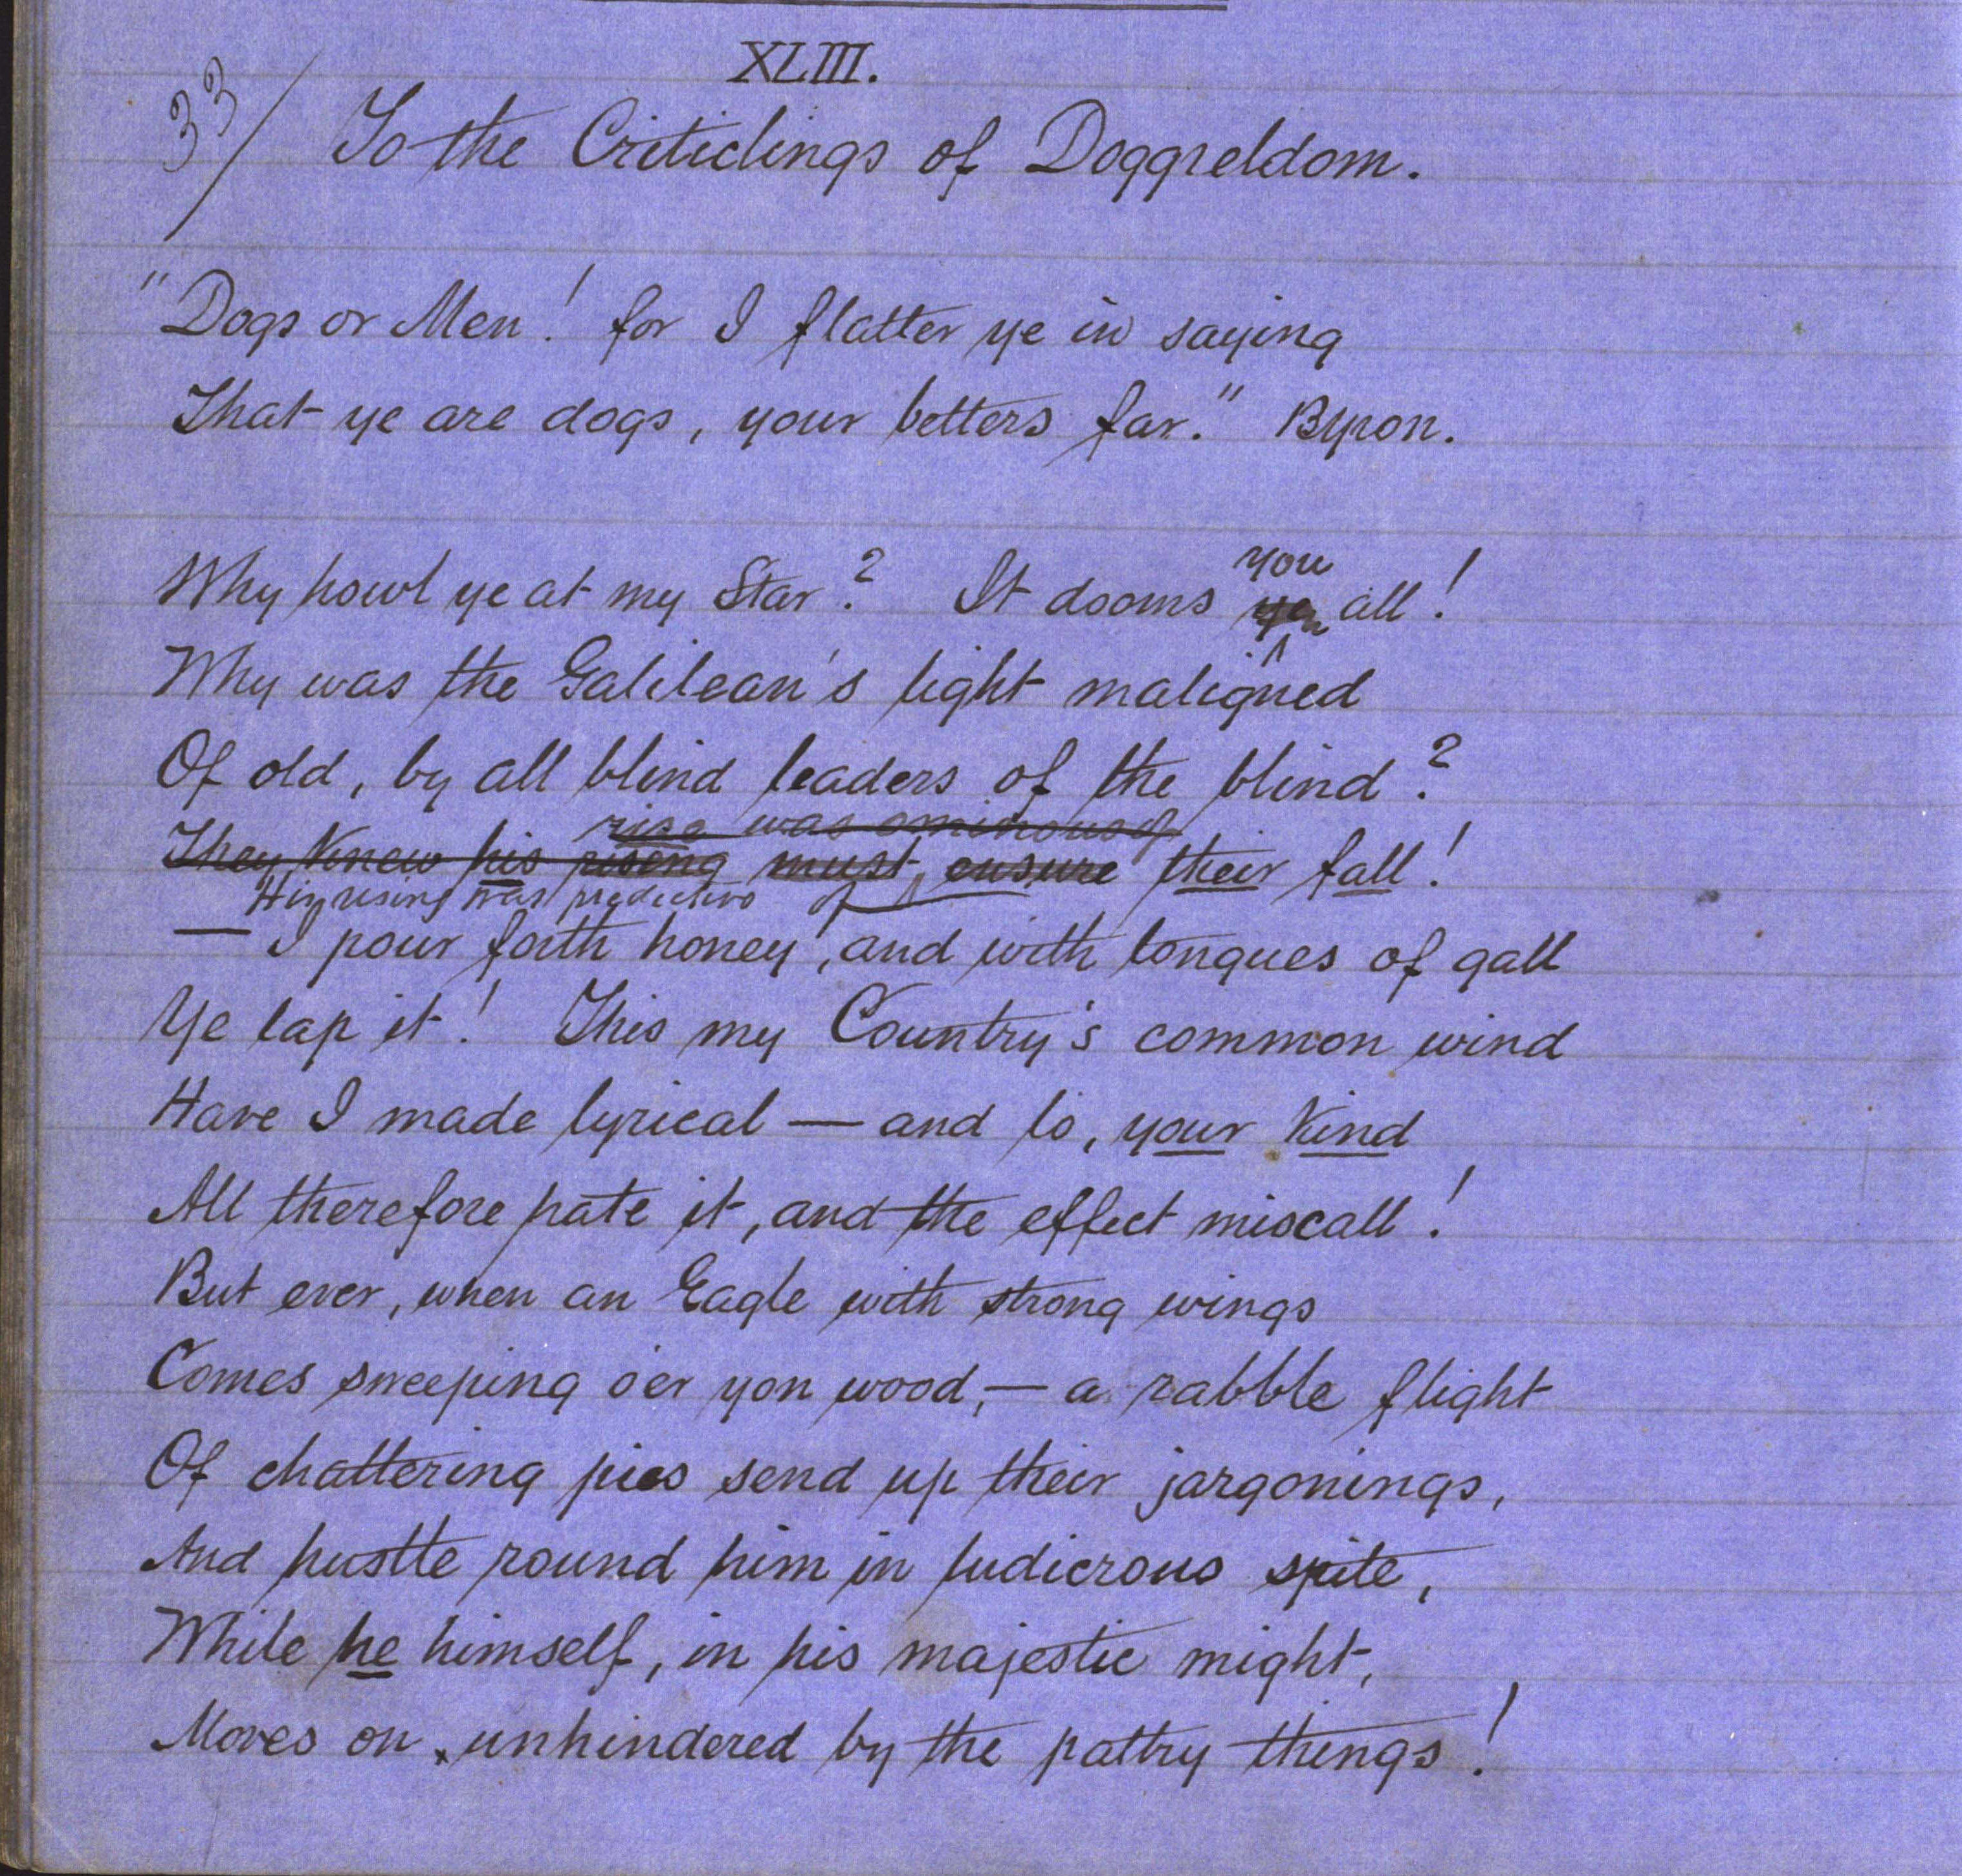 XLIII.
33/ To the Criticlings of Doggreldom.
"Dogs or Men! for I flatter ye in saying
That ye are dogs, your betters far." Byron.
you
Why howl ye at my Star? It dooms ye all!
Why was the Galilean's light maligned
Of old, by all blind leaders of the blind?
rise was ominous of
They knew his rising must ensure their fall!
His rising was predictive of
— I pour forth honey, and with tongues of gall
Ye lap it! This my Country's common wind
Have I made lyrical — and lo, your kind
All therefore hate it, and the effect miscall!
But ever, when an Eagle with strong wings
Comes sweeping o'er yon wood, — a rabble flight
Of chattering pies send up their jargonings,
And hustle round him in ludicrous spite,
While he himself, in his majestic might,
Moves on unhindered by the paltry things!